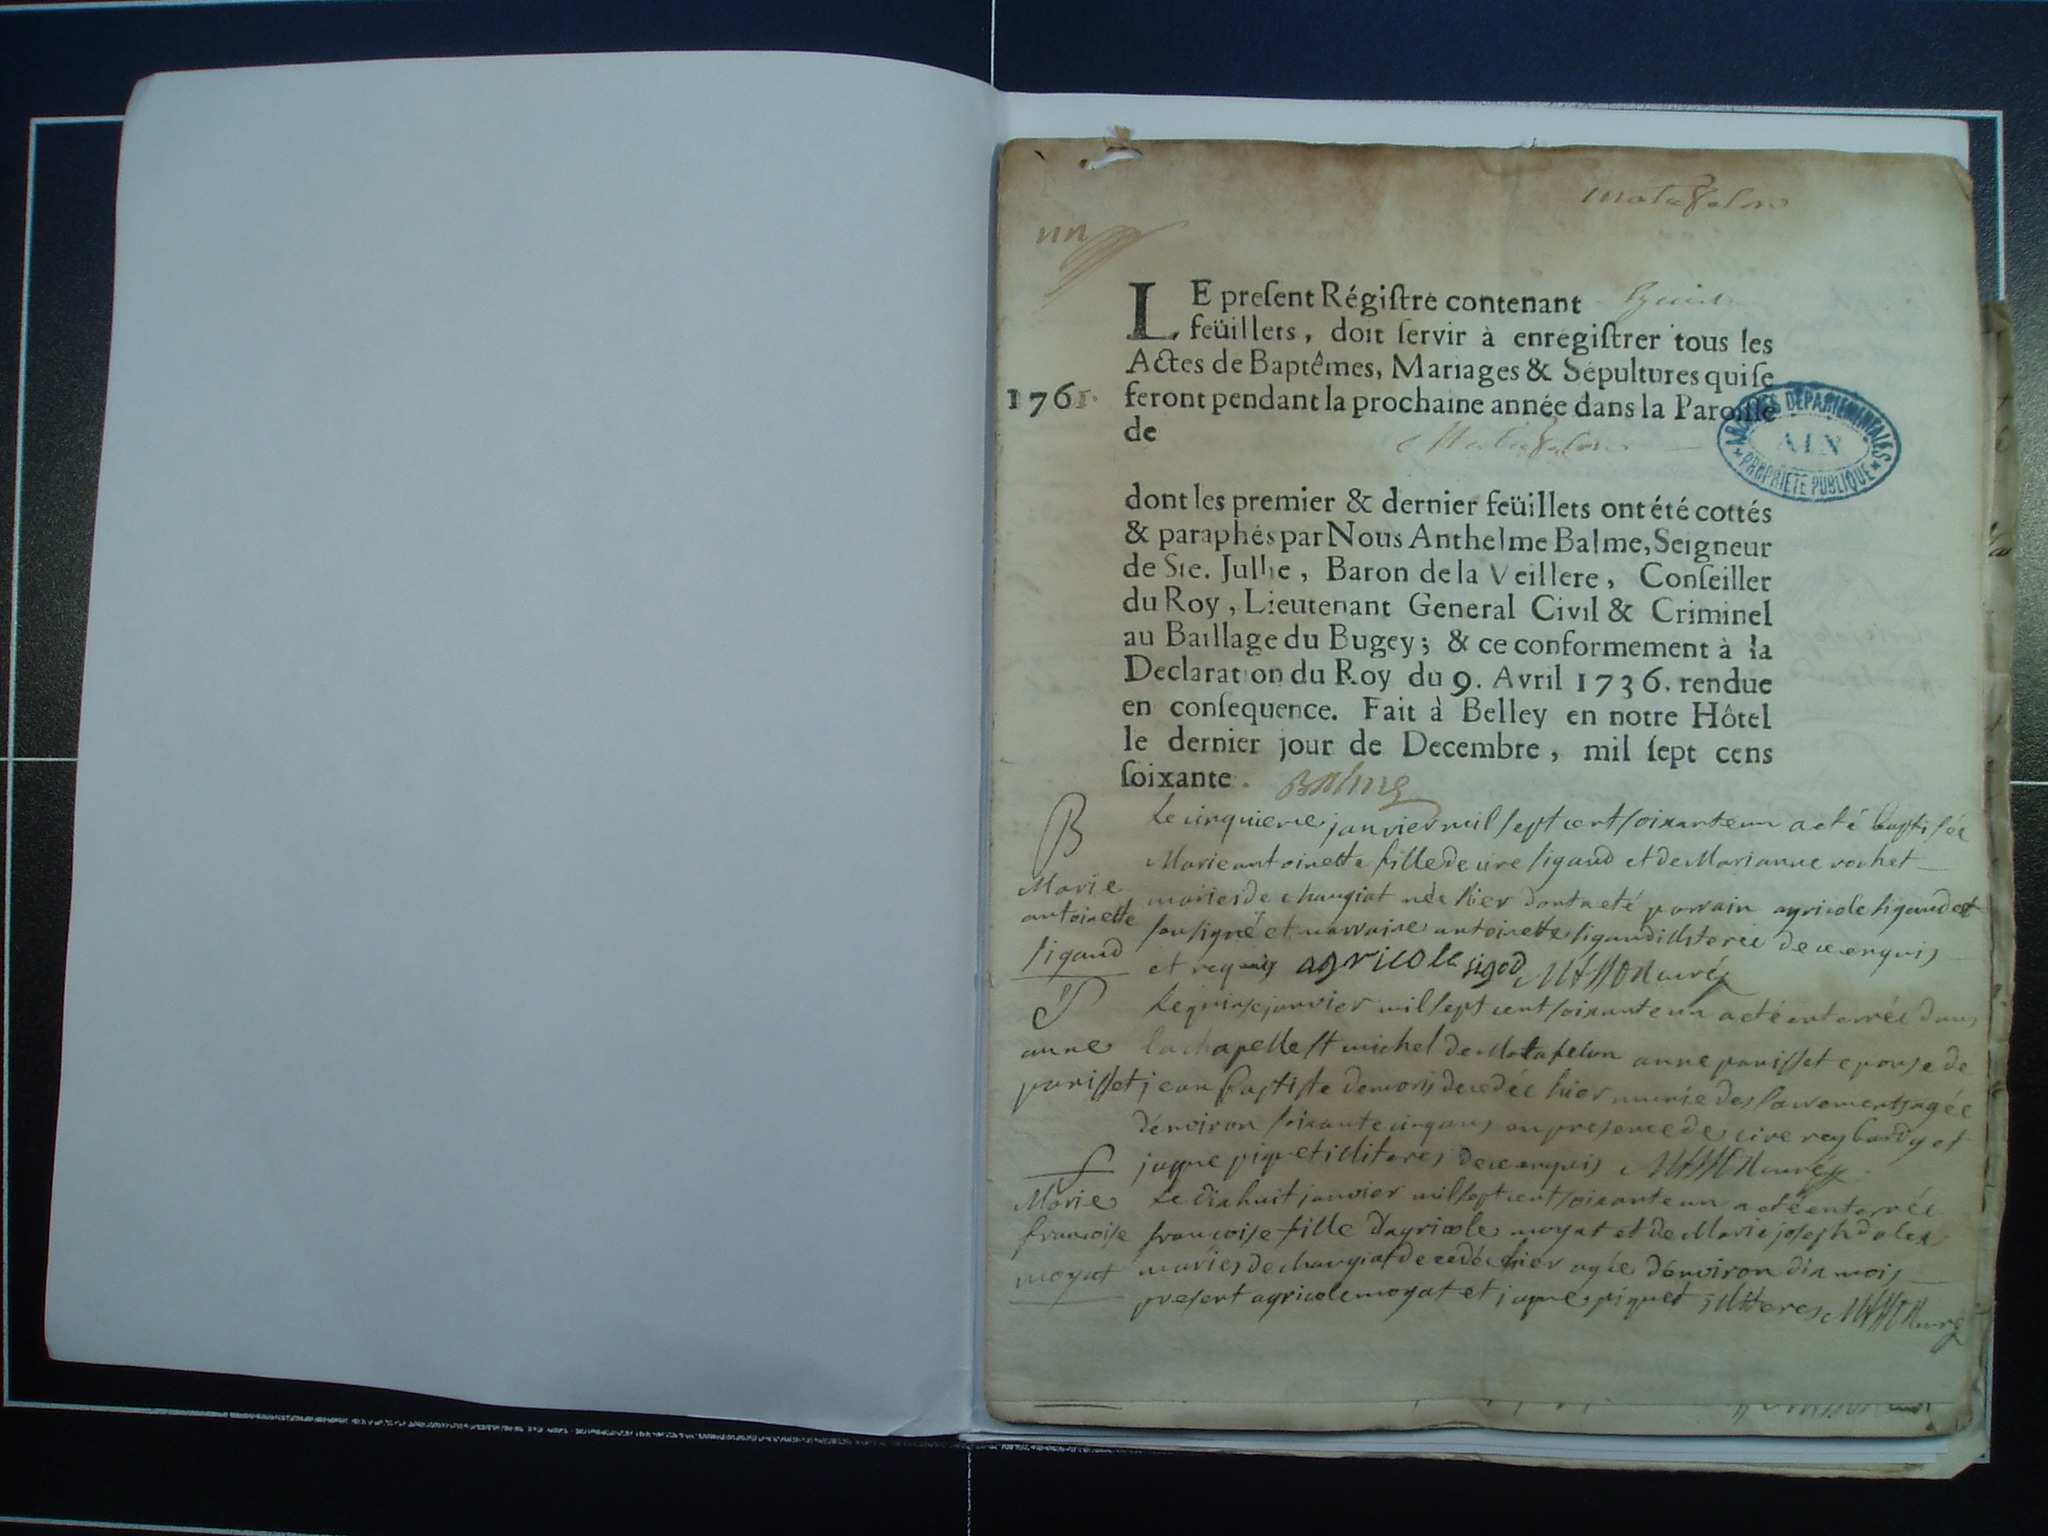 matafelon
un
LE preſent Régiſtre contenant
feüillets, doit ſervir à enregiſtrer tous les
Actes de Baptêmes, Mariages & Sépultures qui ſe
1761. feront pendant la prochaine année dans la Paroiſſe
de Matafelon
ARCHIVES DEPARTEMENTALES
AIN
PROPRIETE PUBLIQUE
dont les premier & dernier feüillets ont été cottés
& paraphés par Nous Anthelme Balme, Seigneur
de Ste. Jullie, Baron de la Veillere, Conſeiller
du Roy, Lieutenant General Civil & Criminel
au Baillage du Bugey; & ce conformement à la
Declaration du Roy du 9. Avril 1736. rendue
en conſequence. Fait à Belley en notre Hôtel
le dernier jour de Decembre, mil ſept cens
ſoixante. Balme
B
Marie
antoinette
sigaud
Le cinquieme janvier mil sept cent soixante un a eté baptisée
Marie antoinette fille de sigaud et de Marianne rochet
mariés de changiat née hier dont a eté parrain agricole sigaud
soussigné et marraine antoinette sigaud illiterée de ce enquis
et requis agricole sigod
S
anne
parisset
Le quinse janvier mil sept cent soixante un a eté enterrée dans
la chapelle st michel de Matafelon anne parisset epouse de
jean baptiste decedée hier munie des sacrements agée
d'environ soixante cinq ans en presence de et
jaque piquet illiteres de ce enquis
S
Marie
francoise
moyat
Le dix huit janvier mil sept cent soixante un a eté enterrée
francoise fille d'agricole moyat et de Marie joseph
mariés de changiat decedée hier agée d'environ dix mois
present agricole moyat et jaque piquet illiteres